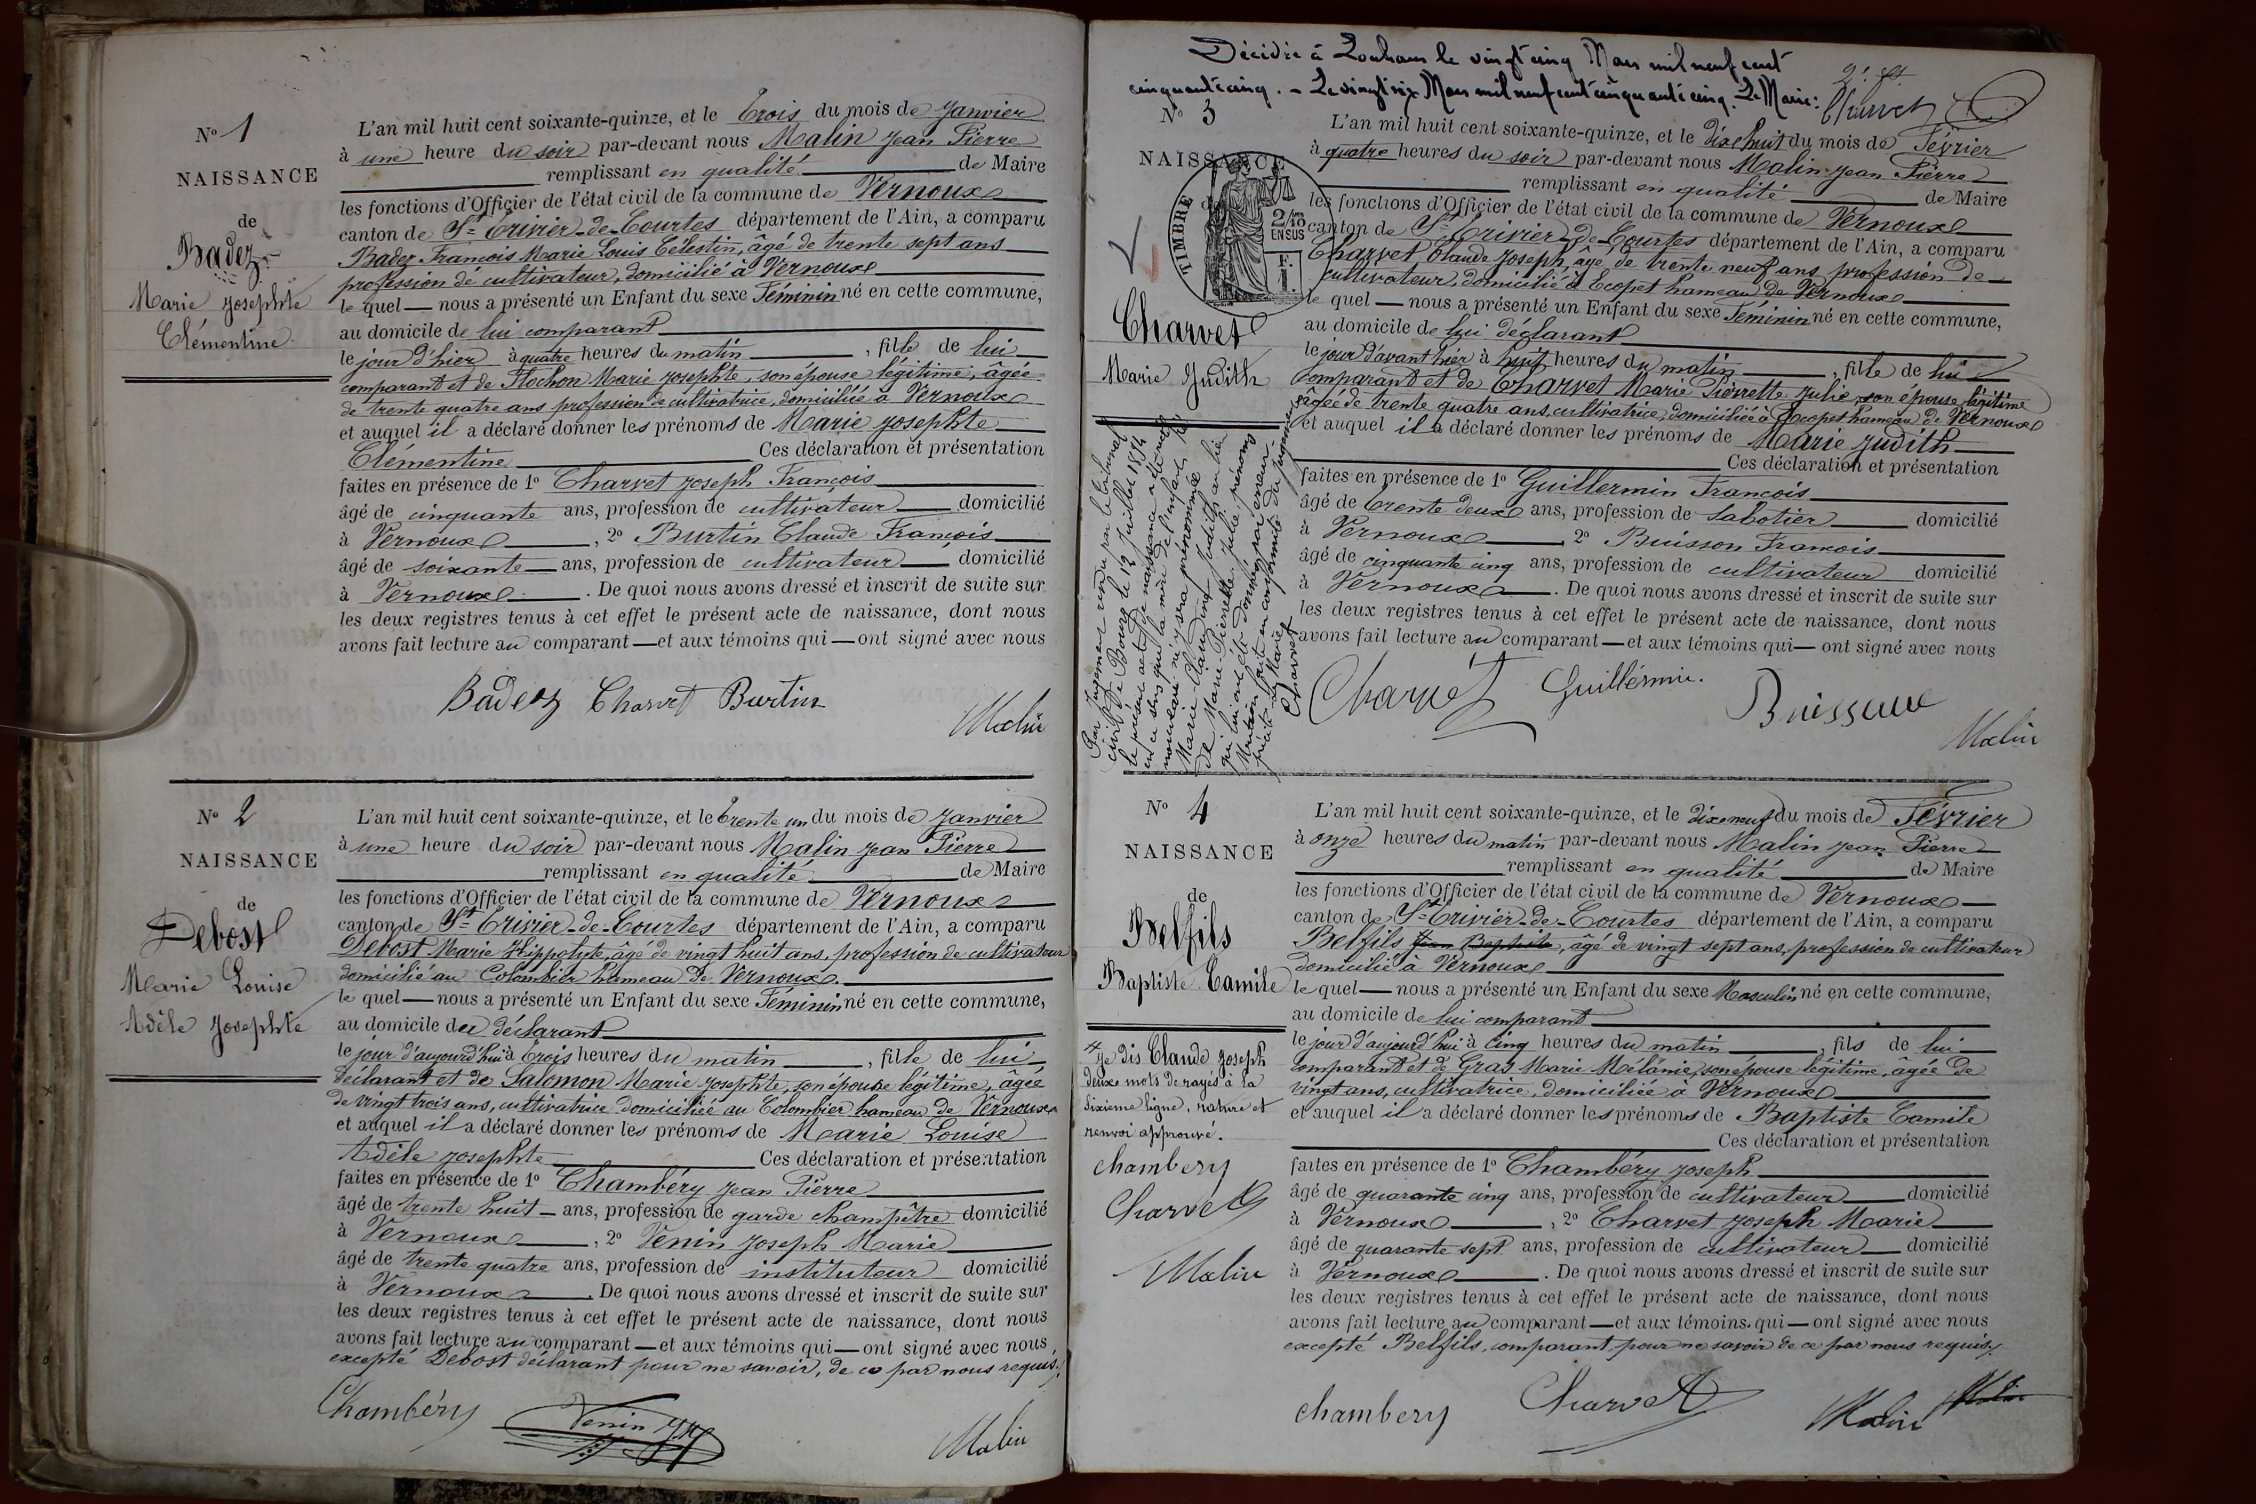 N° 1
NAISSANCE
de
Badez
Marie Josephte
Clémentine
L'an mil huit cent soixante-quinze, et le Trois du mois de Janvier
à une heure du soir par-devant nous Malin Jean Pierre
remplissant en qualité de Maire
les fonctions d'Officier de l'état civil de la commune de Vernoux
canton de St Trivier-de-Courtes département de l'Ain, a comparu
Badez François Marie Louis Célestin, âgé de trente sept ans
profession de cultivateur, domicilié à Vernoux
le quel nous a présenté un Enfant du sexe Féminin né en cette commune,
au domicile de lui comparant
le jour d'hier à quatre heures du matin, fille de lui
comparant et de Flochon Marie Josephte, son épouse légitime, âgée
de trente quatre ans profession de cultivatrice, domiciliée à Vernoux
et auquel il a déclaré donner les prénoms de Marie Josephte
Clémentine Ces déclaration et présentation
faites en présence de 1° Charvet Joseph François
âgé de cinquante ans, profession de cultivateur domicilié
à Vernoux, 2° Burtin Claude François
âgé de soixante ans, profession de cultivateur domicilié
à Vernoux. De quoi nous avons dressé et inscrit de suite sur
les deux registres tenus à cet effet le présent acte de naissance, dont nous
avons fait lecture au comparant et aux témoins qui ont signé avec nous
Badez Charvet Burtin
Malin
N° 2
NAISSANCE
de
Debost
Marie Louise
Adèle Josephte
L'an mil huit cent soixante-quinze, et le Trente un du mois de Janvier
à une heure du soir par-devant nous Malin Jean Pierre
remplissant en qualité de Maire
les fonctions d'Officier de l'état civil de la commune de Vernoux
canton de St Trivier-de-Courtes département de l'Ain, a comparu
Debost Marie Hippolyte, âgé de vingt huit ans, profession de cultivateur
domicilié au Colombier hameau de Vernoux
le quel nous a présenté un Enfant du sexe Féminin né en cette commune,
au domicile du déclarant
le jour d'aujourd'hui à Trois heures du matin, fille de lui
déclarant et de Salomon Marie Josephte, son épouse légitime, âgée
de vingt trois ans, cultivatrice domiciliée au Colombier hameau de Vernoux
et auquel il a déclaré donner les prénoms de Marie Louise
Adèle Josephte Ces déclaration et présentation
faites en présence de 1° Chambéry Jean Pierre
âgé de trente huit ans, profession de garde champêtre domicilié
à Vernoux, 2° Venin Joseph Marie
âgé de trente quatre ans, profession de instituteur domicilié
à Vernoux. De quoi nous avons dressé et inscrit de suite sur
les deux registres tenus à cet effet le présent acte de naissance, dont nous
avons fait lecture au comparant et aux témoins qui ont signé avec nous
excepté Debost déclarant pour ne savoir, de ce par nous requis.
Chambéry Venin J.M.
Malin
Décédée à Louhans le vingt cinq Mars mil neuf cent
cinquante cinq. - Le vingt six Mars mil neuf cent cinquante cinq. Le Maire:
Charvet
N° 3
NAISSANCE
de
TIMBRE
2/10 EN SUS
F. 1.
Charvet
Marie Judith
Par jugement rendu par le tribunal
civil de Bourg le 12 Juillet 1894
le présent acte de naissance a été rectifié
en ce sens que la mère de l'enfant
nouveau né y sera prénommée
Marie-Claudine-Judith au lieu
de Marie-Pierrette Julie, prénoms
qui lui ont été donnés par erreur
Mention faite en conformité du jugement
précité. Le Maire
Charvet
L'an mil huit cent soixante-quinze, et le dix huit du mois de Février
à quatre heures du soir par-devant nous Malin Jean Pierre
remplissant en qualité de Maire
les fonctions d'Officier de l'état civil de la commune de Vernoux
canton de St Trivier-de-Courtes département de l'Ain, a comparu
Charvet Claude Joseph, âgé de trente neuf ans profession de
cultivateur, domicilié à Ecopet hameau de Vernoux
le quel nous a présenté un Enfant du sexe Féminin né en cette commune,
au domicile de lui déclarant
le jour d'avant hier à huit heures du matin, fille de lui
comparant et de Charvet Marie Pierrette Julie son épouse légitime
âgée de trente quatre ans, cultivatrice, domiciliée à Ecopet hameau de Vernoux
et auquel il a déclaré donner les prénoms de Marie Judith
Ces déclaration et présentation
faites en présence de 1° Guillermin François
âgé de trente deux ans, profession de Sabotier domicilié
à Vernoux, 2° Buisson François
âgé de cinquante cinq ans, profession de cultivateur domicilié
à Vernoux. De quoi nous avons dressé et inscrit de suite sur
les deux registres tenus à cet effet le présent acte de naissance, dont nous
avons fait lecture au comparant et aux témoins qui ont signé avec nous
Charvet Guillérmin. Buisson
Malin
N° 4
NAISSANCE
de
Belfils
Baptiste Camile
Je dis Claude Joseph
deux mots de rayés à la
sixieme ligne, rature et
renvoi approuvé.
chambery
Charvet
Malin
L'an mil huit cent soixante-quinze, et le dix neuf du mois de Février
à onze heures du matin par-devant nous Malin Jean Pierre
remplissant en qualité de Maire
les fonctions d'Officier de l'état civil de la commune de Vernoux
canton de St Trivier-de-Courtes département de l'Ain, a comparu
Belfils Jean Baptiste, âgé de vingt sept ans, profession de cultivateur
domicilié à Vernoux
le quel nous a présenté un Enfant du sexe Masculin né en cette commune,
au domicile de lui comparant
le jour d'aujourd'hui à cinq heures du matin, fils de lui
comparant et de Gras Marie Mélanie, son épouse légitime, âgée de
vingt ans, cultivatrice, domiciliée à Vernoux
et auquel il a déclaré donner les prénoms de Baptiste Camile
Ces déclaration et présentation
faites en présence de 1° Chambéry Joseph
âgé de quarante cinq ans, profession de cultivateur domicilié
à Vernoux, 2° Charvet Joseph Marie
âgé de quarante sept ans, profession de cultivateur domicilié
à Vernoux. De quoi nous avons dressé et inscrit de suite sur
les deux registres tenus à cet effet le présent acte de naissance, dont nous
avons fait lecture au comparant et aux témoins qui ont signé avec nous
excepté Belfils, comparant pour ne savoir de ce par nous requis.
chambery Charvet Malin Malin